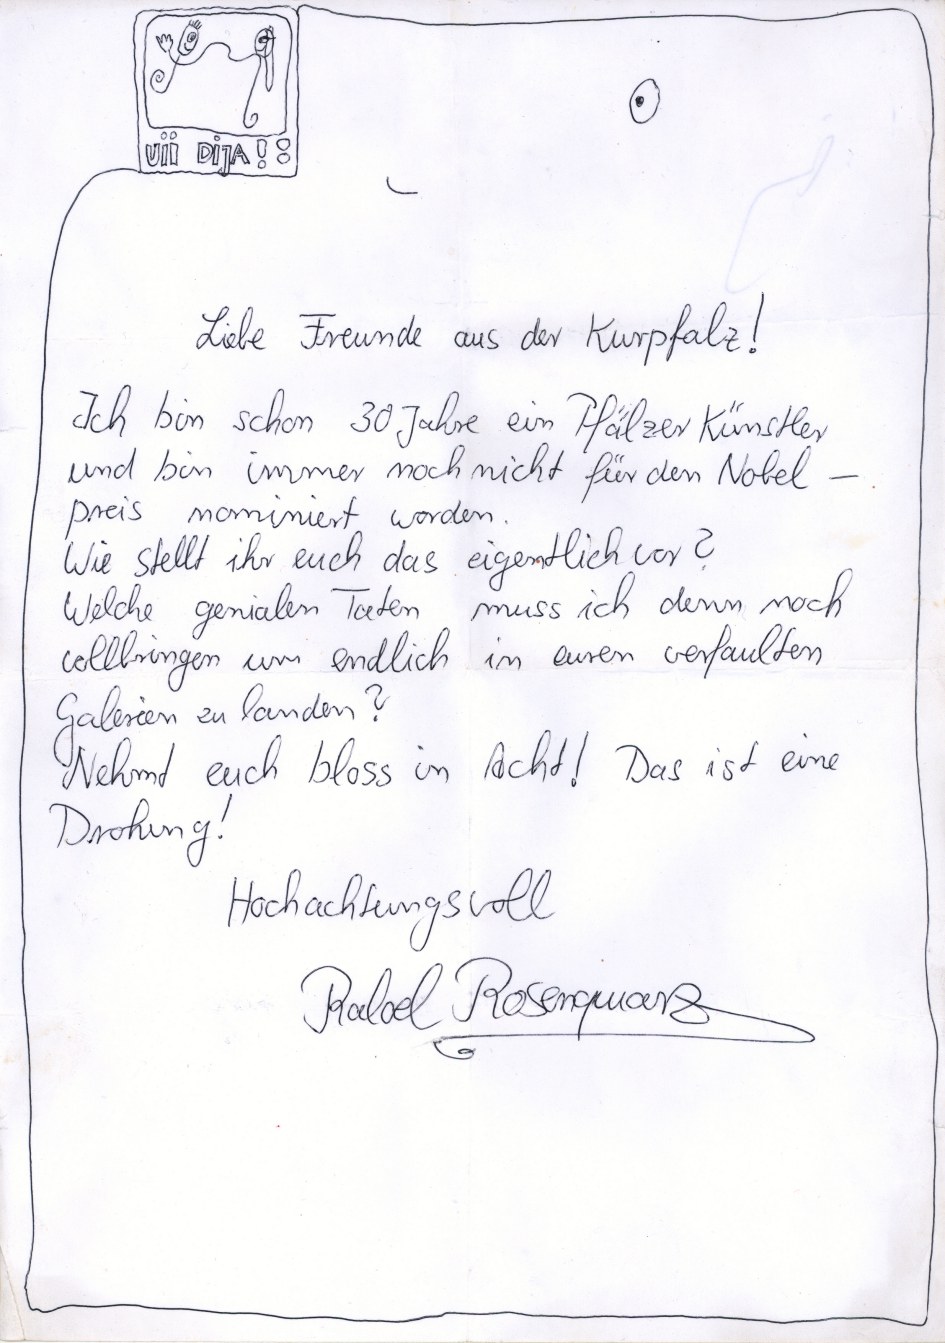 UII DIJA!
Liebe Freunde aus der Kurpfalz!
Ich bin schon 30 Jahre ein Pfälzer Künstler
und bin immer noch nicht für den Nobel –
preis nominiert worden.
Wie stellt ihr euch das eigentlich vor?
Welche genialen Taten muss ich denn noch
vollbringen um endlich in euren verfaulten
Galerien zu landen?
Nehmt euch bloss in Acht! Das ist eine
Drohung!
Hochachtungsvoll
Rosenquarz